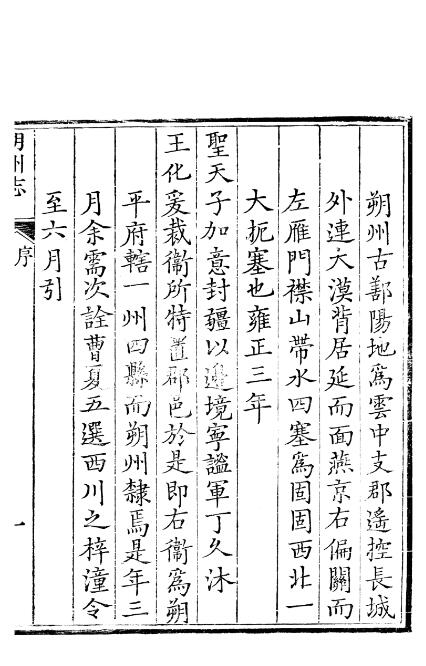 朔州古鄯陽地爲雲中支郡遙控長城
外連大漠背居延而面燕京右偏關而
左雁門襟山帶水四塞爲固固西北一
大扼塞也雍正三年
聖天子加意封疆以邊境寧謐軍丁久沐
王化爰裁衞所特置郡邑於是即右衞爲朔
平府轄一州四縣而朔州隸焉是年三
月余需次詮曹夏五選西川之梓潼令
至六月引
朔州志
序
一